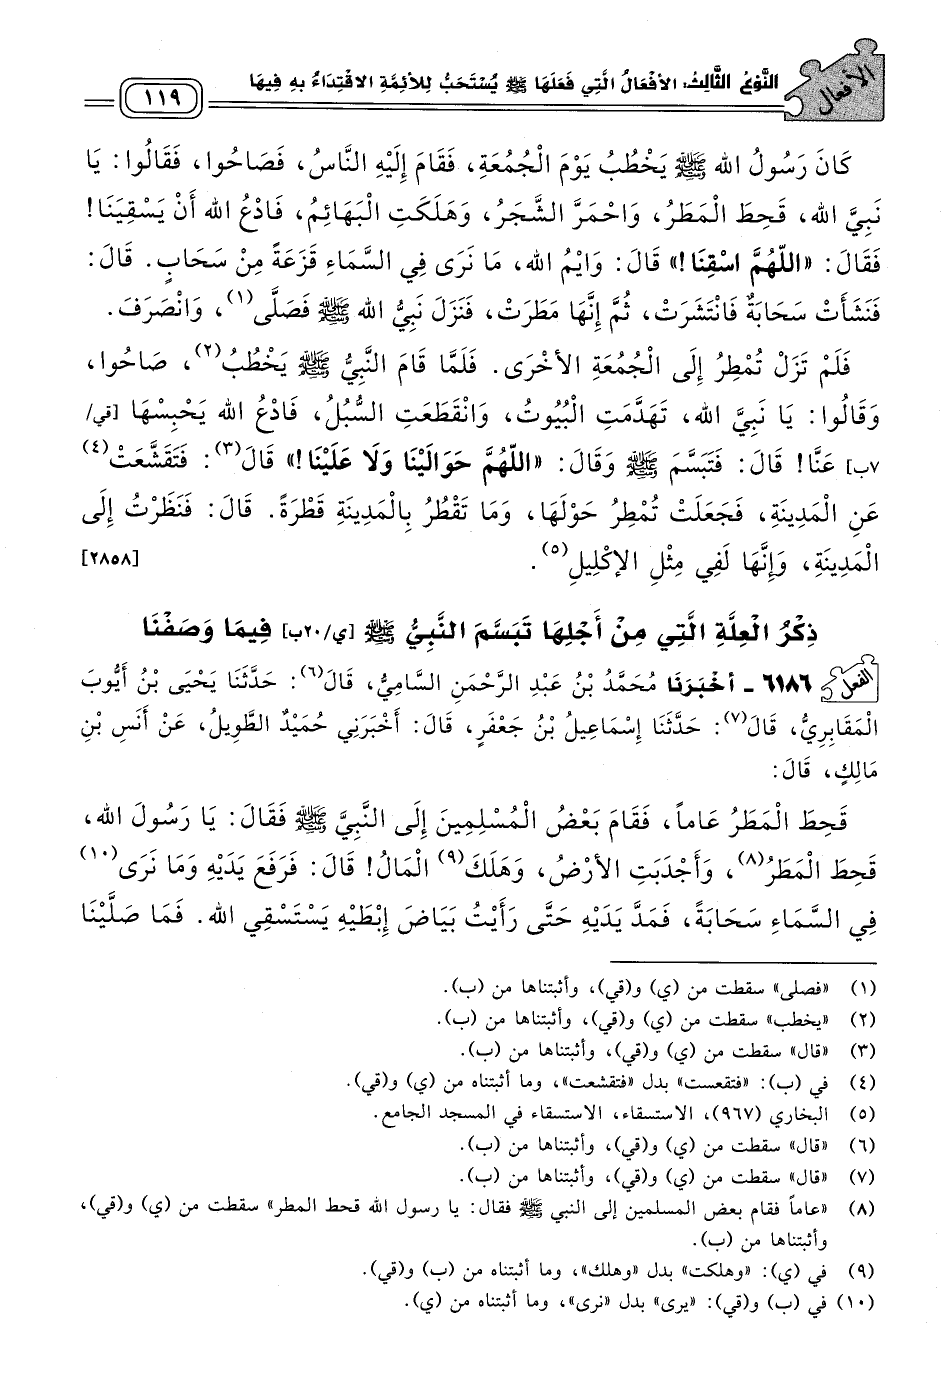 الأفعال
النَّوْعُ الثَّالِثُ: الأَفْعَالُ الَّتِي فَعَلَهَا ﷺ يُسْتَحَبُّ لِلأَئِمَّةِ الاقْتِدَاءُ بِهِ فِيهَا
١١٩
كَانَ رَسُولُ الله ﷺ يَخْطُبُ يَوْمَ الْجُمُعَةِ، فَقَامَ إِلَيْهِ النَّاسُ، فَصَاحُوا، فَقَالُوا: يَا
نَبِيَّ الله، قَحِطَ الْمَطَرُ، وَاحْمَرَّ الشَّجَرُ، وَهَلَكَتِ الْبَهَائِمُ، فَادْعُ الله أَنْ يَسْقِيَنَا!
فَقَالَ: «اللّهُمَّ اسْقِنَا!» قَالَ: وَايْمُ الله، مَا نَرَى فِي السَّمَاءِ قَزَعَةً مِنْ سَحَابٍ. قَالَ:
فَنَشَأَتْ سَحَابَةٌ فَانْتَشَرَتْ، ثُمَّ إِنَّهَا مَطَرَتْ، فَنَزَلَ نَبِيُّ الله ﷺ فَصَلَّى(١)، وَانْصَرَفَ.
فَلَمْ تَزَلْ تُمْطِرُ إِلَى الْجُمُعَةِ الأخْرَى. فَلَمَّا قَامَ النَّبِيُّ ﷺ يَخْطُبُ(٢)، صَاحُوا،
وَقَالُوا: يَا نَبِيَّ الله، تَهَدَّمَتِ الْبُيُوتُ، وَانْقَطَعَتِ السُّبُلُ، فَادْعُ الله يَحْبِسْهَا [في/
٧ب] عَنَّا! قَالَ: فَتَبَسَّمَ ﷺ وَقَالَ: «اللّهُمَّ حَوَالَيْنَا وَلَا عَلَيْنَا!» قَالَ(٣): فَتَقَشَّعَتْ(٤)
عَنِ الْمَدِينَةِ، فَجَعَلَتْ تُمْطِرُ حَوْلَهَا، وَمَا تَقْطُرُ بِالْمَدِينَةِ قَطْرَةً. قَالَ: فَنَظَرْتُ إِلَى
الْمَدِينَةِ، وَإِنَّهَا لَفِي مِثْلِ الإكْلِيلِ(٥). [٢٨٥٨]
ذِكْرُ الْعِلَّةِ الَّتِي مِنْ أَجْلِهَا تَبَسَّمَ النَّبِيُّ ﷺ [ي/٢٠ب] فِيمَا وَصَفْنَا
الفعل ٦١٨٦ - أَخْبَرَنَا مُحَمَّدُ بْنُ عَبْدِ الرَّحْمَنِ السَّامِيُّ، قَالَ(٦): حَدَّثَنَا يَحْيَى بْنُ أَيُّوبَ
الْمَقَابِرِيُّ، قَالَ(٧): حَدَّثَنَا إِسْمَاعِيلُ بْنُ جَعْفَرٍ، قَالَ: أَخْبَرَنِي حُمَيْدٌ الطَّوِيلُ، عَنْ أَنَسِ بْنِ
مَالِكٍ، قَالَ:
قَحِطَ الْمَطَرُ عَاماً، فَقَامَ بَعْضُ الْمُسْلِمِينَ إِلَى النَّبِيِّ ﷺ فَقَالَ: يَا رَسُولَ الله،
قَحِطَ الْمَطَرُ(٨)، وَأَجْدَبَتِ الأرْضُ، وَهَلَكَ(٩) الْمَالُ! قَالَ: فَرَفَعَ يَدَيْهِ وَمَا نَرَى(١٠)
فِي السَّمَاءِ سَحَابَةً، فَمَدَّ يَدَيْهِ حَتَّى رَأَيْتُ بَيَاضَ إِبْطَيْهِ يَسْتَسْقِي الله. فَمَا صَلَّيْنَا
(١) «فصلى» سقطت من (ي) و(قي)، وأثبتناها من (ب).
(٢) «يخطب» سقطت من (ي) و(قي)، وأثبتناها من (ب).
(٣) «قال» سقطت من (ي) و(قي)، وأثبتناها من (ب).
(٤) في (ب): «فتقعست» بدل «فتقشعت»، وما أثبتناه من (ي) و(قي).
(٥) البخاري (٩٦٧)، الاستسقاء، الاستسقاء في المسجد الجامع.
(٦) «قال» سقطت من (ي) و(قي)، وأثبتناها من (ب).
(٧) «قال» سقطت من (ي) و(قي)، وأثبتناها من (ب).
(٨) «عاماً فقام بعض المسلمين إلى النبي ﷺ فقال: يا رسول الله قحط المطر» سقطت من (ي) و(قي)،
وأثبتناها من (ب).
(٩) في (ي): «وهلكت» بدل «وهلك»، وما أثبتناه من (ب) و(قي).
(١٠) في (ب) و(قي): «يرى» بدل «نرى»، وما أثبتناه من (ي).